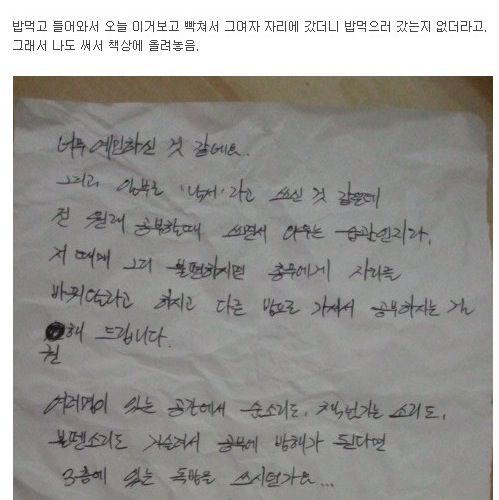 밥먹고 들어와서 오늘 이거보고 빡쳐서 그여자 자리에 갔더니 밥먹으러 갔는지 없더라고.
그래서 나도 써서 책상에 올려놓음.
너무 예민하신 것 같네요.
그리고 일부로 '낙서'라고 쓰신 것 같은데
전 원래 공부할때 쓰면서 외우는 습관인지라,
저 때매 그리 불편하시면 총무에게 자리를
바꿔달라고 하시고 다른 방으로 가셔서 공부하시는 걸
권해 드립니다.
여러명이 있는 공간에서 숨소리도, 책넘기는 소리도,
볼펜소리도 거슬려서 공부에 방해가 된다면
3층에 있는 독방을 쓰시던가요...